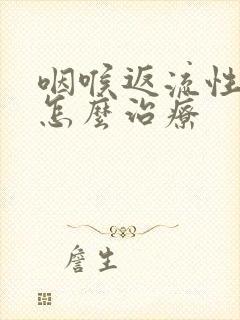 咽喉返流性
怎麼治療
詹生